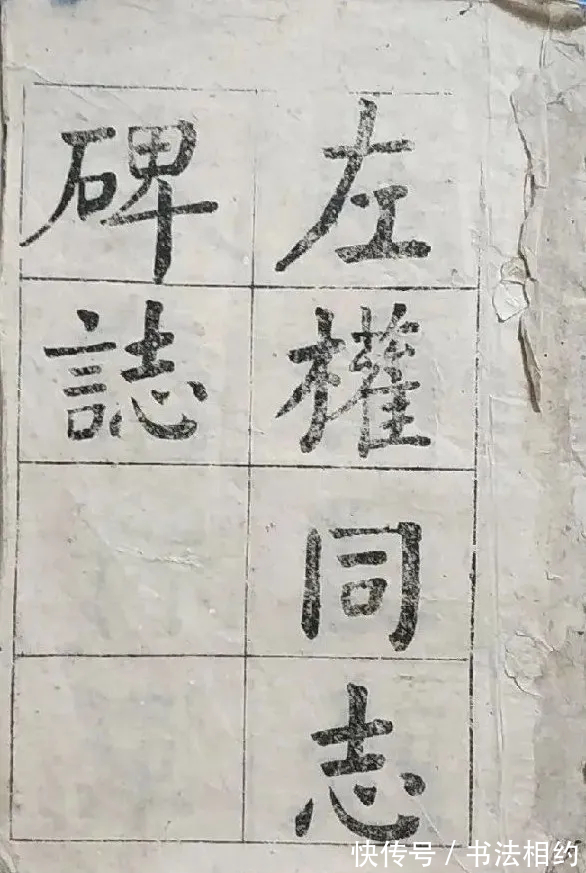 左權同志
碑誌
快传号/书法相约